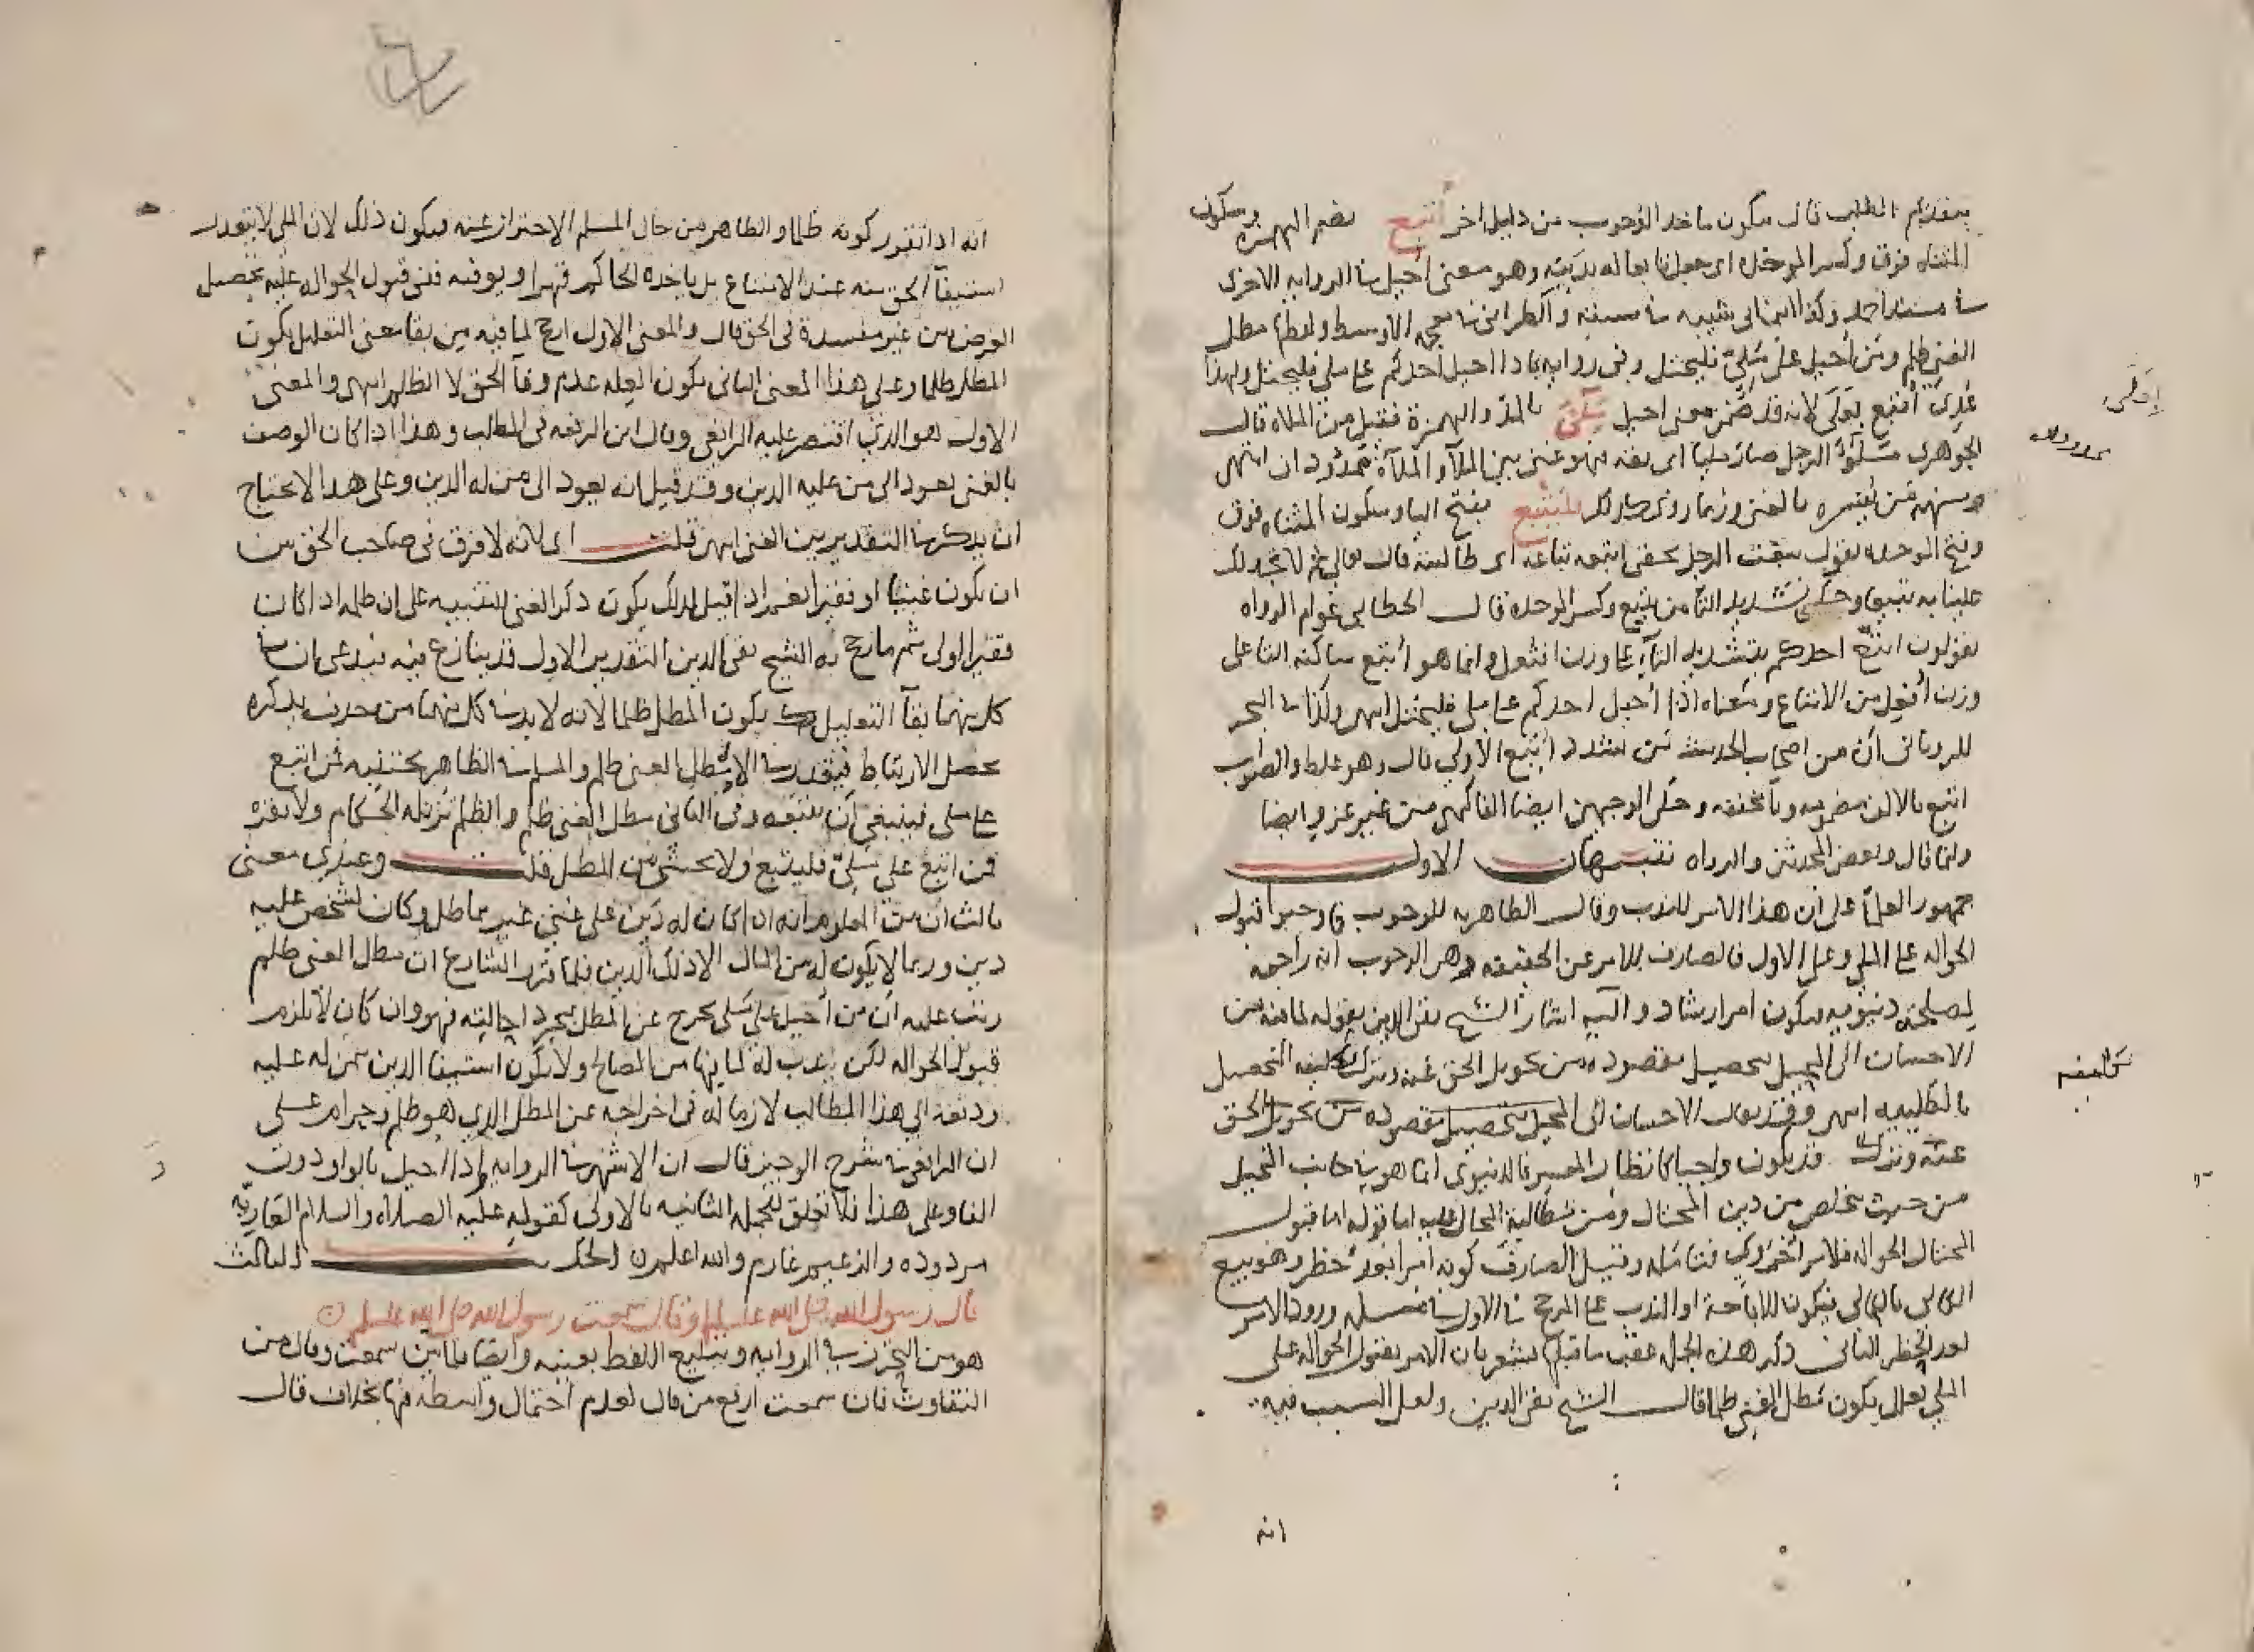 بتقديم الطلب قال فيكون ماخذ الوجوب من دليل اخر أتبع بضم الهمزه وسكون
المثناه فوق وكسر الموحده اى جعل تابعا له بدينه وهو معنى أحيل في الروايه الاخرى
في مسند احمد وكذا ابن ابي شيبه في مسنده والطبراني في معجمه الاوسط ولفظه مطل
الغني ظلم ومن أحيل على مليّ فليحتل وفي روايه فاذا احيل احدكم على ملي فليحتل ولهذا
عُدِّيَ أتبع بعلى لانه قد ضمن معنى احيل مليّ بالمد والهمزة فقيل من الملاه قال
الجوهري ملؤ الرجل صار مليا اى ثقه فهو غني بين الملآ والملآة ممدودان انتهى
ومنهم من يفسره بالغني وربما روي كذلك فليتبع بفتح اليا وسكون المثناه فوق
وفتح الموحده يقول تبعت الرجل بحقى اتبعه تباعه اى طالبته قال تعالى ثم لا تجد لك
علينا به تبيعا وحكي تشديد التا من يتبع وكسر الموحده قال الخطابي عوام الرواه
يقولون اتبع احدكم بتشديد التآ على وزن افتعل وانما هو أتبع ساكنه التا على
وزن أفعل من الاتباع ومعناه اذا أحيل احدكم على ملي فليحتل انتهى وكذا في البحر
للروياني أن من اصحاب الحديث من شدد اتبع الاولى قال وهو غلط والصواب
اتبع بالالف مضمومه وتا مخففه وحكى الوجهين ايضا الفاكهي من غير عزو ايضا
وانما قال وبعض المحدثين والرواه تنبيهات الاول
جمهور العلمآ على ان هذا الامر للندب وقال الظاهريه للوجوب فاوجبوا قبول
الحواله على الملي وعلى الاول فالصارف للامر عن الحقيقه وهى الوجوب انه راجع
لمصلحه دنيويه فيكون امر ارشاد واليه اشار الشيخ تقي الدين بقوله لما فيه من
الاحسان الى المحيل بتحصيل مقصوده من تحويل الحق عنه وترك تكليفه التحصيل
بالطلب انتهى وقد يقال الاحسان الى المحيل بتحصيل مقصوده من تحويل الحق
عنه وترك قد يكون واجبا كانظار المعسر فالدنيوى انما هو في جانب المحيل
من حيث تخلص من دين المحتال ومن مطالبة المحال عليه اما قوله اما قبول
المحتال الحواله فلامر أخروي فتامله وقيل الصارف كونه امرا بعد حظر وهو بيع
الكالى بالكالى فيكون للاباحة او الندب على المرجح في الاول في مسئله ورود الامر
بعد الحظر الثاني ذكر هذه الجمله عقب ما قبلها يشعر بان الامر بقبول الحواله على
الملي معلل بكون مطل الغني ظلما قال الشيخ تقي الدين ولعل السبب فيه
انه
تكليفه
انه اذا تقرر كونه ظلما والظاهر من حال المسلم الاحتراز عنه فيكون ذلك لان الملي لا يتعذر
استيفآ الحق منه عند الامتناع بل ياخذه الحاكم قهرا ويوفيه ففي قبول الحواله عليه تحصيل
الغرض من غير مفسدة في الحق قال والمعنى الاول ارجح لما فيه من بقا معنى التعليل بكون
المطل ظلما وعلى هذا المعنى الثاني تكون العله عدم وفآ الحق لا الظلم انتهى والمعنى
الاول هو الذي اقتصر عليه الرافعي وقال ابن الرفعه في المطلب وهذا اذا كان الوصف
بالغني يعود الى من عليه الدين وقد قيل انه يعود الى من له الدين وعلى هذا لا يحتاج
ان يذكر في التقدير بين الغني انتهى قلت اى لانه لا فرق في صاحب الحق بين
ان يكون غنيا او فقيرا نعم اذا قيل بذلك يكون ذكر الغني للتنبيه على ان ظلمه اذا كان
فقيرا اولى ثم ما رجح به الشيخ تقي الدين التقدير الاول قد ينازع فيه فيدعى ان في
كل منهما بقآ التعليل بكون المطل ظلما لانه لا بد في كل منهما من حذف يذكره
يحصل الارتباط فيقدر في الاول مطل الغني ظلم والمسلم في الظاهر يجتنبه فمن اتبع
على ملي فينبغي أن يتبعه وفي الثاني مطل الغني ظلم والظلم تزيله الحكام ولا تقره
فمن اتبع على مليّ فليتبع ولا يخشى من المطل قلت وعندي معنى
ثالث أن من المعلوم انه اذا كان له دين على غني غير مماطل وكان لشخص عليه
دين وربما لا يكون له من المال الا ذلك الدين فلما قرر الشارع ان مطل الغني ظلم
رتب عليه أن من أحيل على ملي يخرج عن المطل بمجرد احالته فهو وان كان لا يلزمه
قبول الحواله لكن يندب له لما فيها من المصالح ولا يكون استيفا الدين ممن له عليه
ودفعه الى هذا المطالب لازما له في اخراجه عن المطل الذي هو ظلم وحرام على
ان الرافعي في شرح الوجيز قال ان الاشهر في الروايه واذا احيل بالواو دون
الفا وعلى هذا فلا تعلق للجمله الثانيه بالاولى كقوله عليه الصلاه والسلام العاريّه
مردوده والزعيم غارم والله اعلم الحديث الثالث
قال رسول الله صلى الله عليه وسلم او قال سمعت رسول الله صلى الله عليه وسلم
هو من التحرز في الروايه وتبليغ اللفظ بعينه وايضا لما بين سمعت وقال من
التفاوت فان سمعت ارفع من قال لعدم احتمال واسطه فيها بخلاف قال